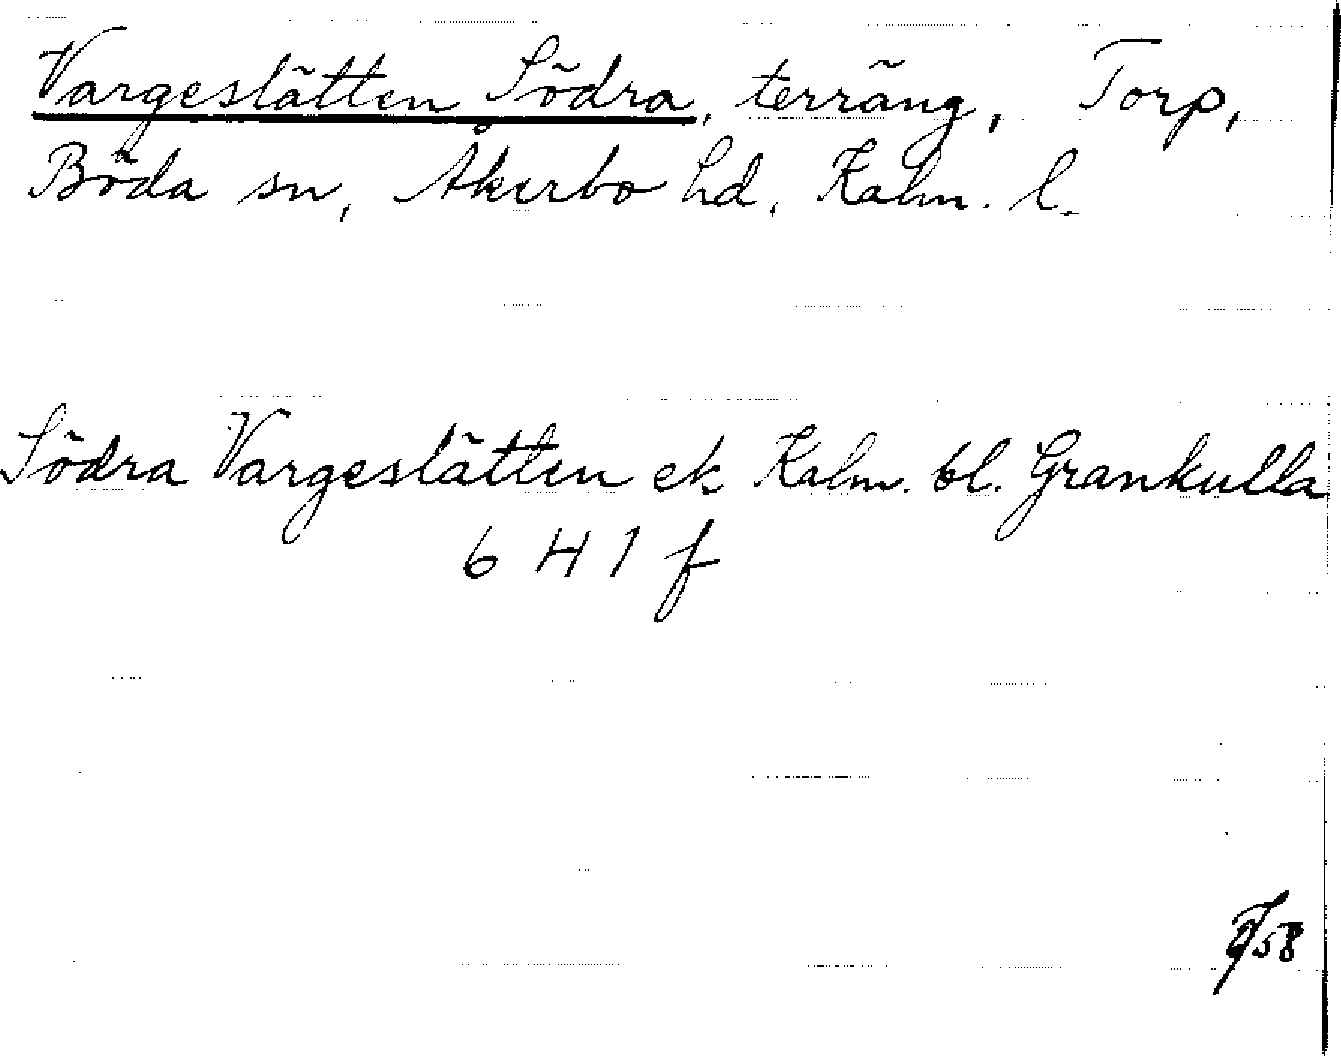 Vargeslätten Södra, terräng, Torp,
Böda sn, Åkerbo hd, Kalm. l.
Södra Vargeslätten ek Kalm. bl. Grankulla
6 H 1 f
58